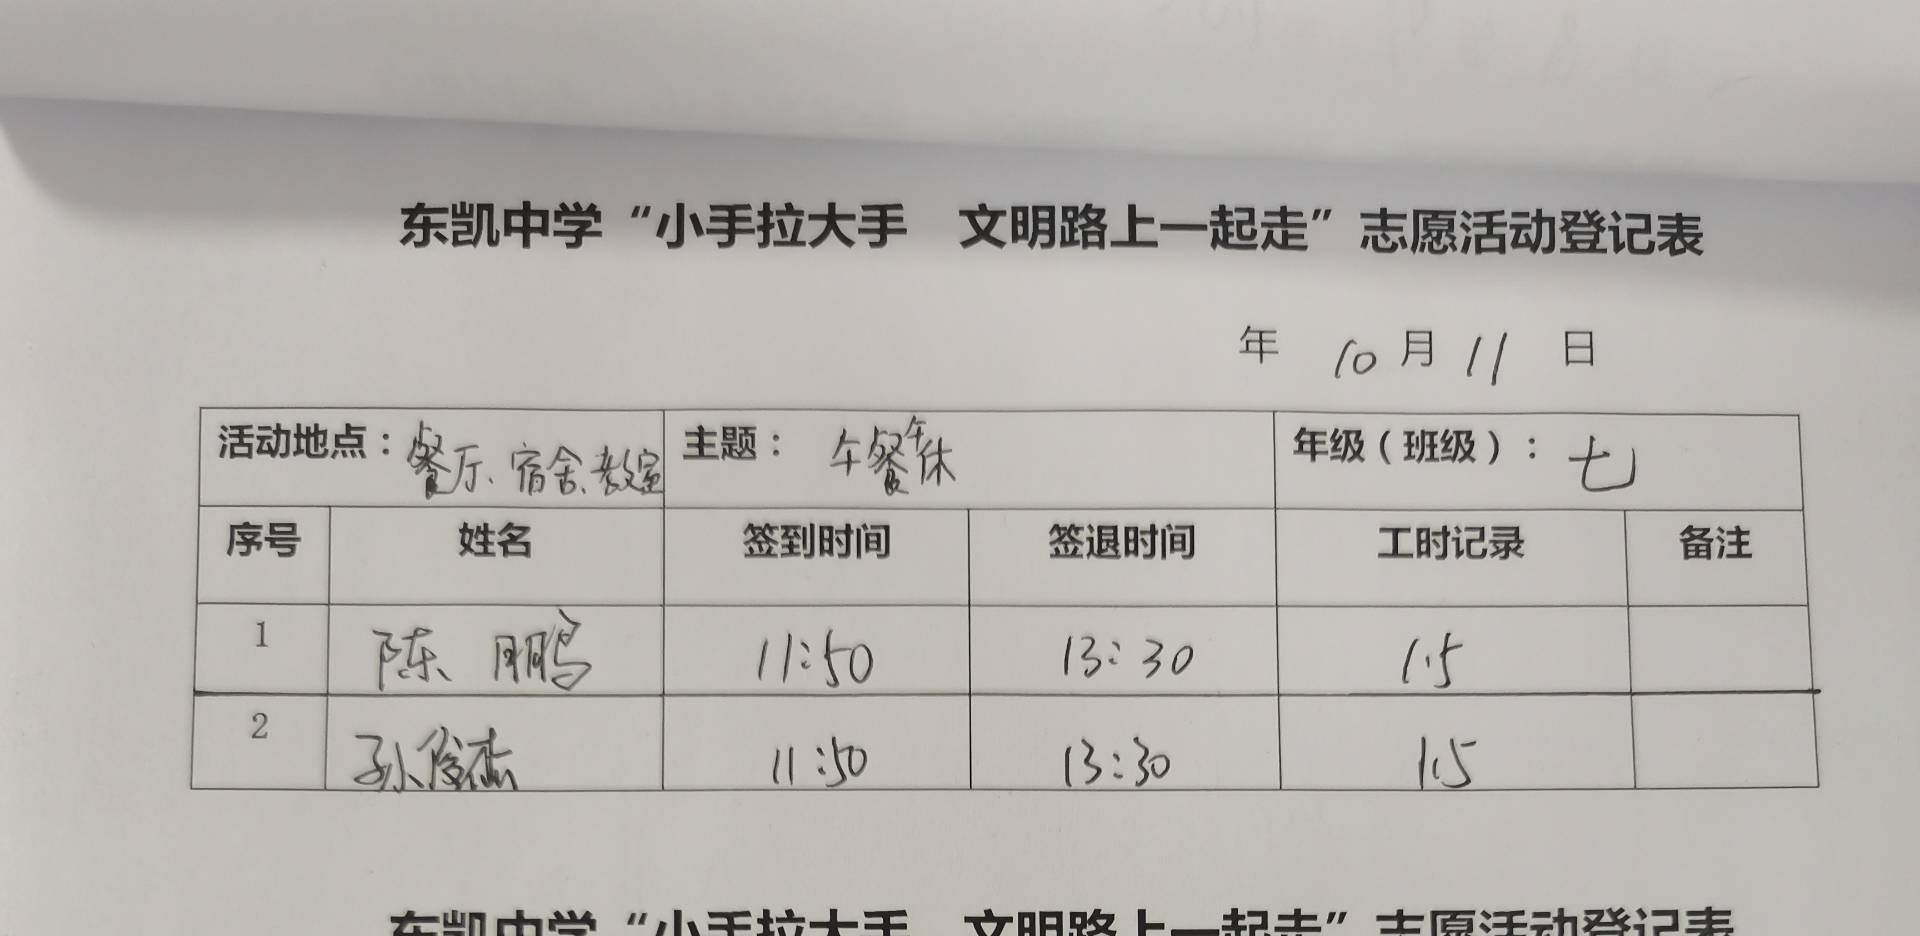 东凯中学“小手拉大手　文明路上一起走”志愿活动登记表
年 10 月 11 日
活动地点：餐厅、宿舍、教室 主题： 午餐午休 年级（班级）：七
序号 姓名 签到时间 签退时间 工时记录 备注
1 陈鹏 11:50 13:30 1.5
2 孙俊杰 11:50 13:30 1.5
东凯中学“小手拉大手　文明路上一起走”志愿活动登记表